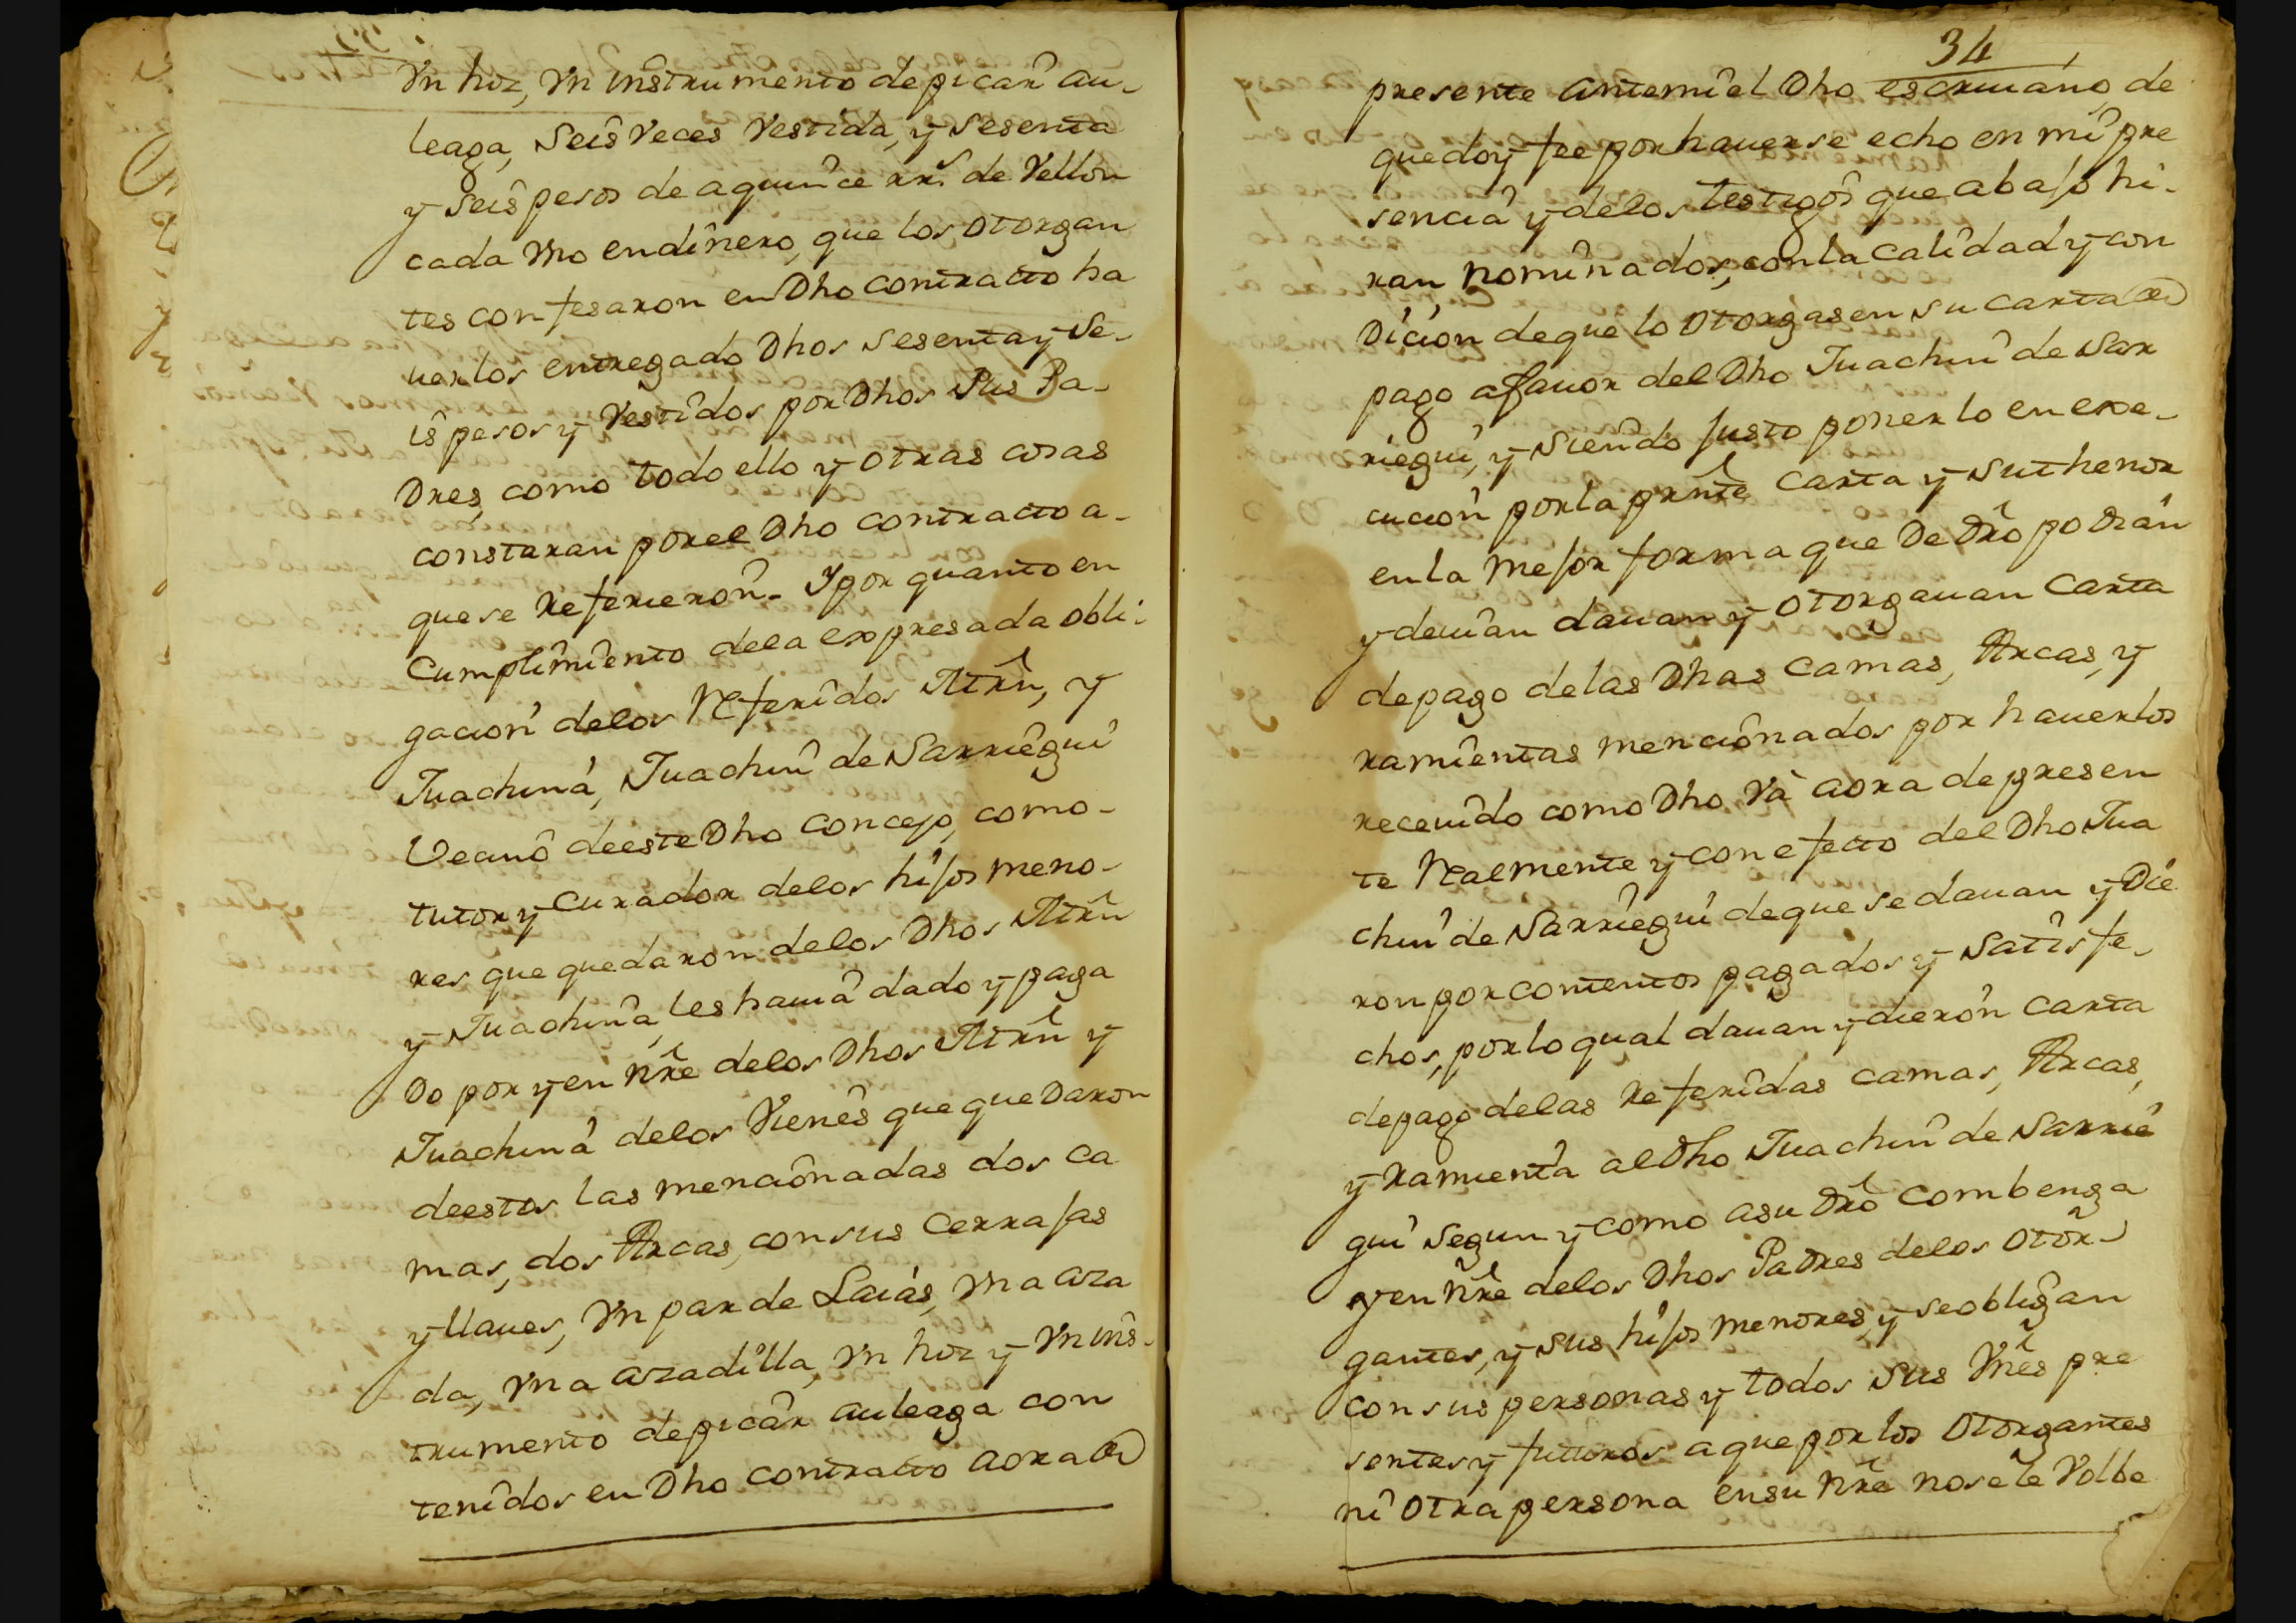 Vn hoz, Vn instrumento de picar au-
leaga, Seis Veces Vestida, y Sesenta
y Seis pesos de a quince rrs. de Vellon
cada Vno en dinero, que los otorgan
tes confesaron en Dho contracto ha
uerlos entregado Dhos Sesenta y Se-
is pesos y Vestidos por Dhos Sus Pa-
Dres, como todo ello y otras cosas
constaran por el Dho contracto a-
que se Refirieron. Y por quanto en
Cumplimiento dela expresada obli-
gacion delos Referidos Mrn, y
Juachina, Juachin de Sarriegui
Vecino de este Dho concejo, como-
tutor y Curador delos hijos meno-
res que quedaron delos Dhos Mrn
y Juachina, les hauia dado y paga
Do por y en nre delos Dhos Mrn y
Juachina delos Vienes que queDaron
de estos las mencionadas dos ca
mas, dos Arcas, con sus Cerrajas
y llaues, Vn par de Laias, Vna aza
da, Vna azadilla, Vn hoz y Vn ins-
trumento de picar auleaga con
tenidos en Dho contracto aora de
34
presente ante mi el Dho escriuano, de
que doy fee por hauerse echo en mi pre
sencia y delos testigos que abajo hi-
ran nominados, con la calidad y con
Dicion de que lo otorgasen su carta de
pago a fauor del Dho Juachin de Sar
riegui, y Siendo justo ponerlo en exe-
cucion por la prnte Carta y su thenor
en la mejor forma que De Dro poDian
y deuian dauan y otorgauan Carta
de pago delas Dhas Camas, Arcas, y
ramientas mencionados por hauerlos
receuido como Dho Và aora de presen
te Realmente y con efecto del Dho Jua
chin de Sarriegui de que se dauan y Die
ron por contentos pagados y Satisfe-
chos, por lo qual dauan y dieron carta
de pago delas Referidas camas, Arcas,
y Ramienta al Dho Juachin de Sarrie
gui Segun y como a su Dro Combenga
y en nre delos Dhos PaDres delos otor-
gantes, y sus hijos menores, y se obligan
con sus personas y todos Sus Vnes pre
sentes y futuros a que por los otorgantes
ni otra persona en su nre no se le Volbe